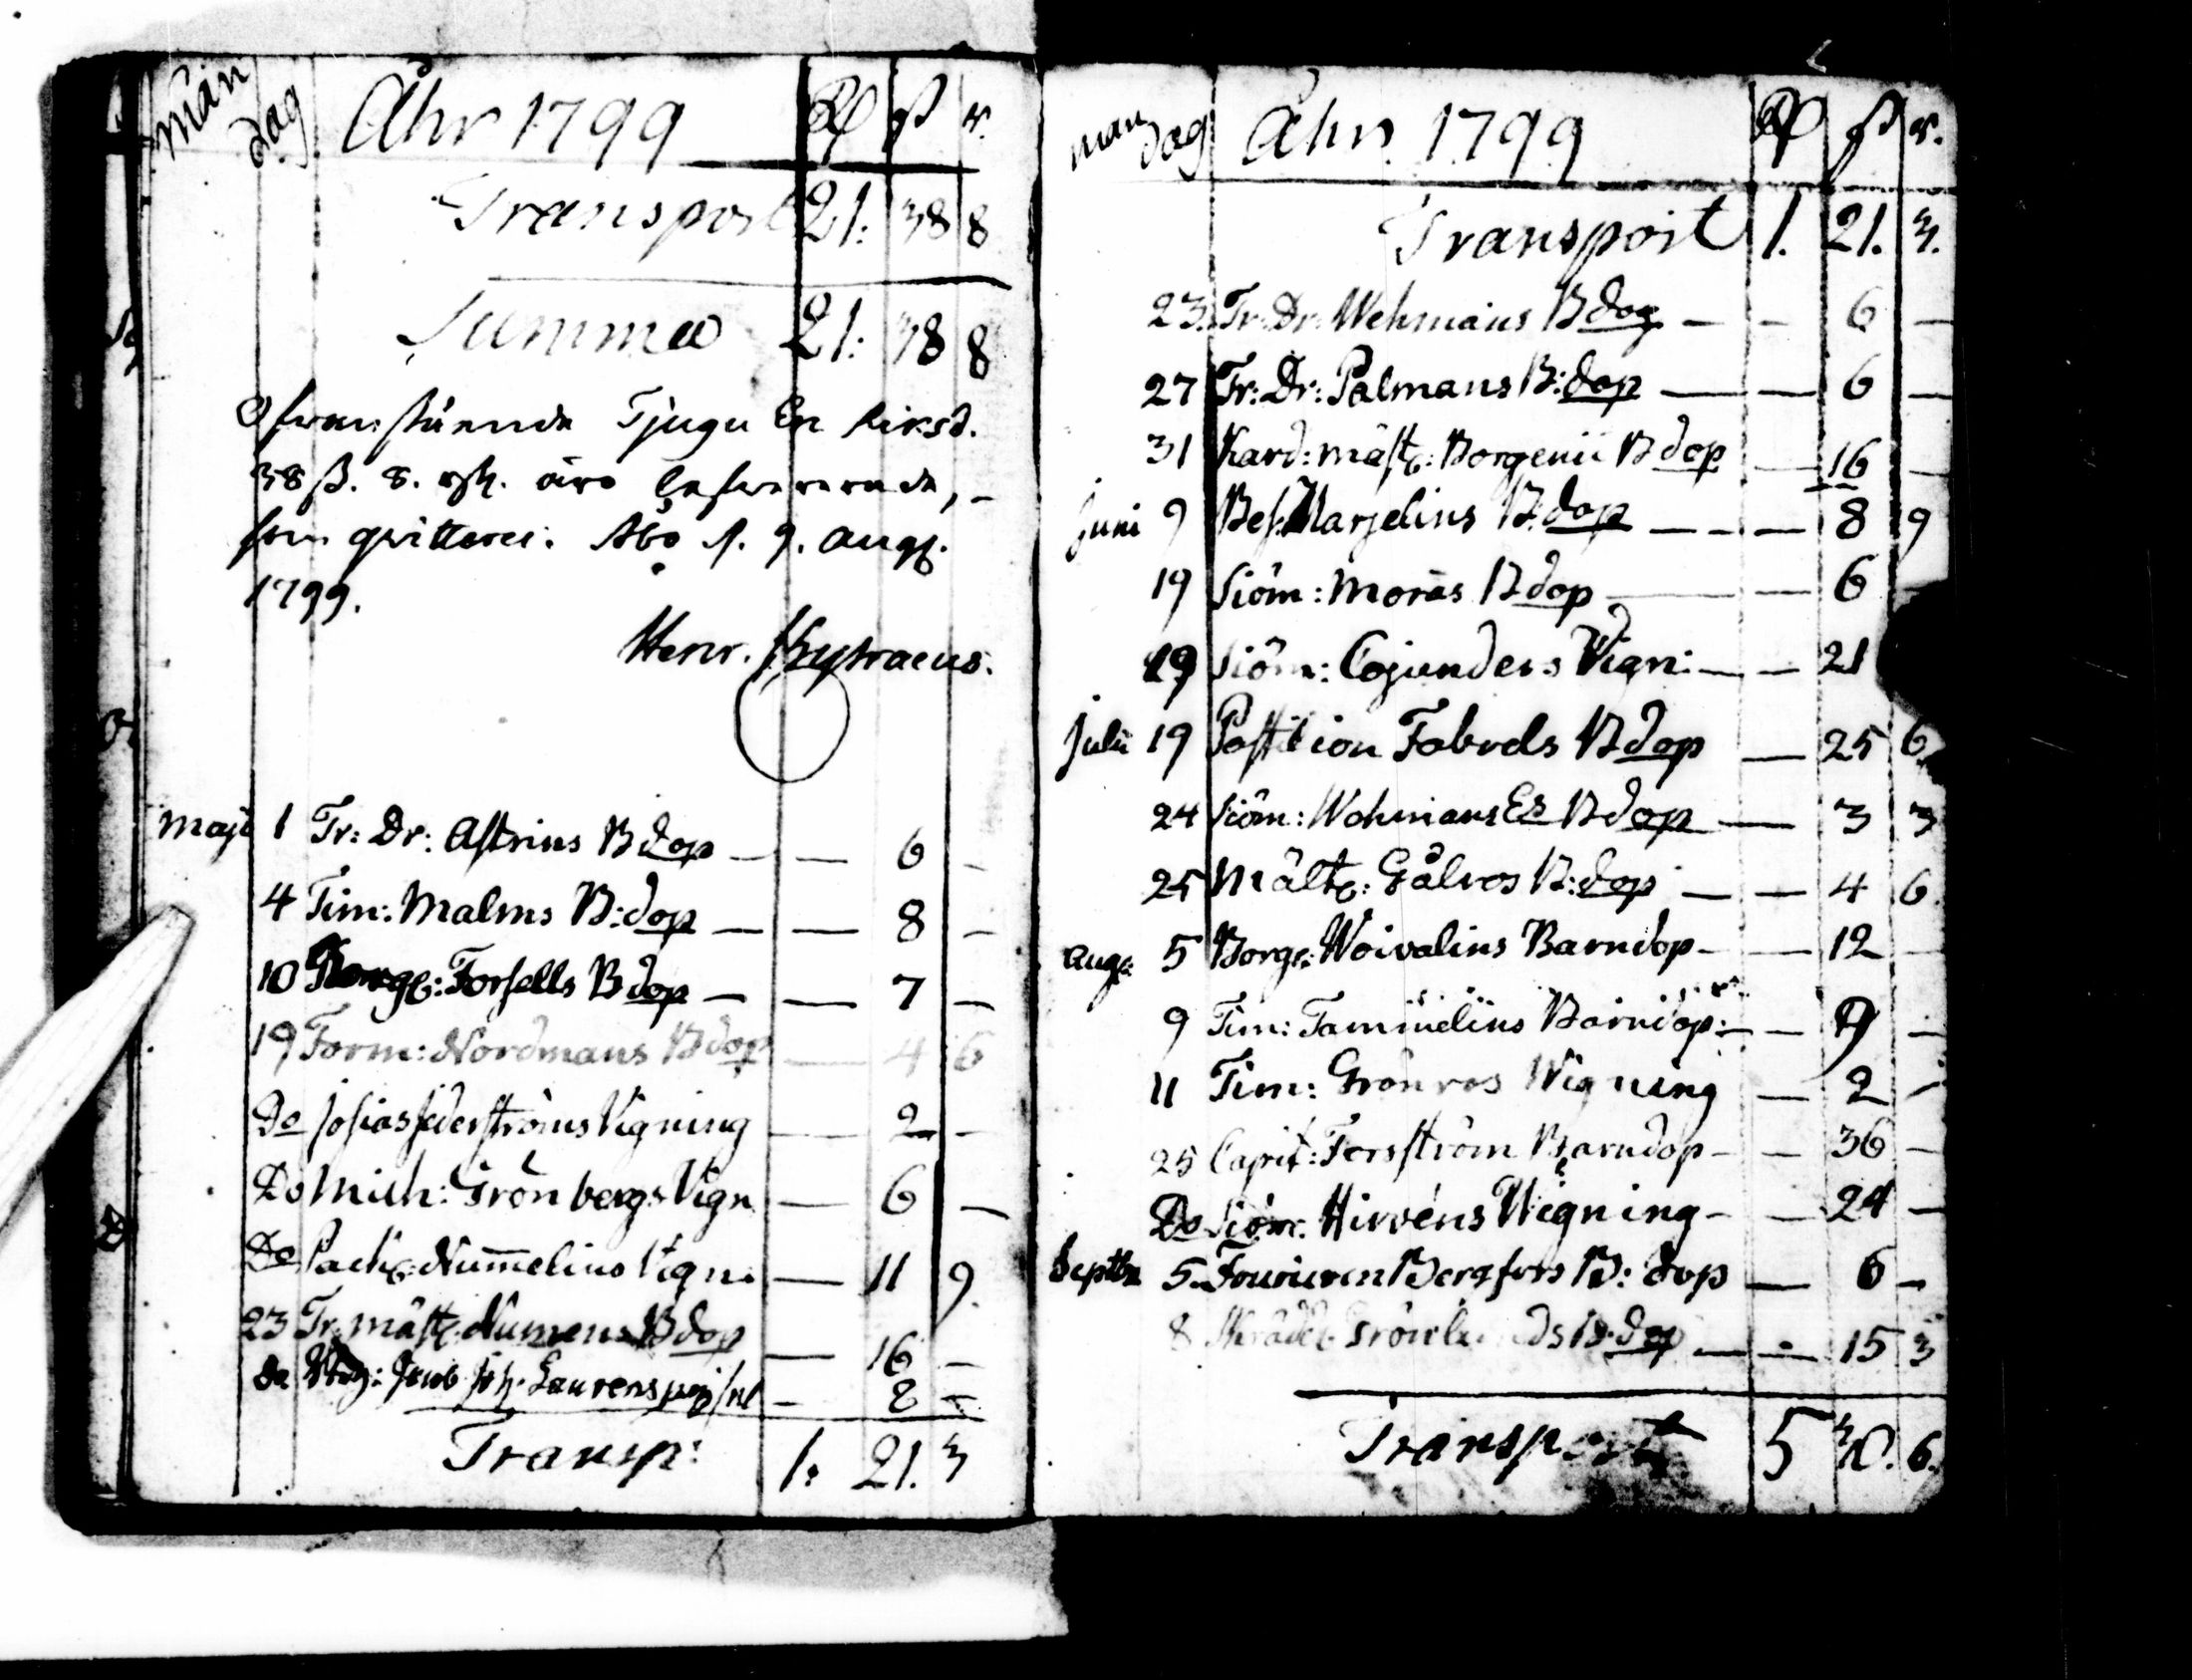 Mån dag Åhr 1799 Rd ß r.
Transport 21: 38 8
Summa 21: 38 8
Ofvanstående Tjugu En Riksd.
38 ß. 8. rst. äro lefvererade, –
som qvitterar. Åbo d. 9. Aug.
1799.
Henr. Kytraeus.
Maji 1 Tr: Dr: Astrins B dop — — 6 –
4 Tim: Malms B: dop — — 8 –
10 Borg: Forsells B dop — — 7 –
19 Form: Nordmans B dop — 4 6
Do Josias Sederströms Vigning — 2 –
Do Mich: Grönbergs Vign — 6 –
Do Nummelins Vign: — 11 9.
23 Tr. mäst: B dop — 16 –
do – 8 –
Transp: 1: 21. 3
mån dag Åhr 1799 Rd ß r.
Transport 1. 21. 3.
23. Tr: Dr: Wehmans B dop — – 6 –
27 Tr: Dr: Palmans B: dop — — 6 –
31 mäst: Borgenii B dop — 16 –
Juni 9 Bes: Marjelins B: dop — — 8 9
19 Siöm: Moras B dop — — 6
19 Siöm: Cojanders Vign: — – 21
Julii 19 Postilion Fabvels B dop — 25 6
24 Siöm: Wehmans Es B dop — 3 3
25 Mält: Gålros B: dop — — 4 6.
Aug: 5 Borg: Woivalins Barndop – — 12 –
9 Tim: Tammelins Barndop: — – 9 –
11 Tim: Grönros Wigning — 2 –
25 Capit: Forsström Barndop – – 36 –
Do Siöm: Hirvéns Wigning – – 24 –
Septbr 5. Bergfors B: dop — 6 –
8 B: dop — – 15 3
Transport 5 30. 6.